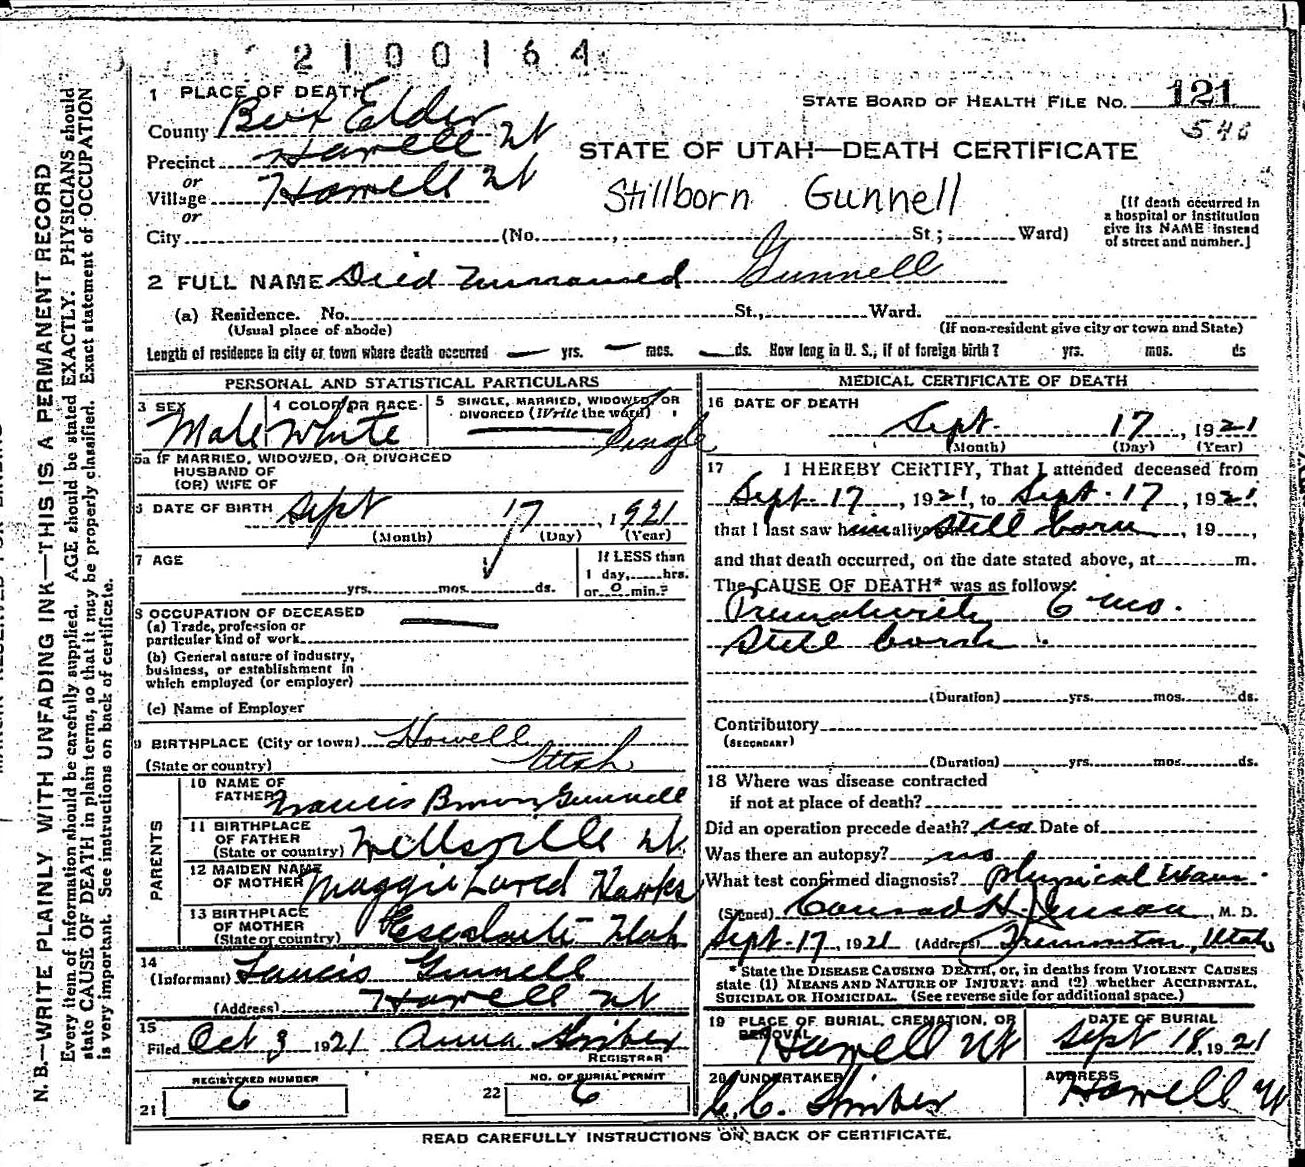 2100164
1 PLACE OF DEATH
STATE BOARD OF HEALTH FILE NO. 121
548
County Box Elder
Precinct Howell Ut
or
Village Howell Ut
or
STATE OF UTAH—DEATH CERTIFICATE
Stillborn Gunnell
City (No. , St; Ward)
[If death occurred in
a hospital or institution
give its NAME instead
of street and number.]
2 FULL NAME Died Unnamed Gunnell
(a) Residence. No. St., Ward.
(Usual place of abode) (If non-resident give city or town and State)
Length of residence in city or town where death occurred — yrs. — mos. — ds. How long in U. S., if of foreign birth? yrs. mos. ds
PERSONAL AND STATISTICAL PARTICULARS
3 SEX Male
4 COLOR OR RACE White
5 SINGLE, MARRIED, WIDOWED, OR
DIVORCED (Write the word)
Single
5a IF MARRIED, WIDOWED, OR DIVORCED
HUSBAND OF
(OR) WIFE OF
6 DATE OF BIRTH Sept 17, 1921
(Month) (Day) (Year)
7 AGE
yrs. mos. ds.
If LESS than
1 day, hrs.
or 0 min.?
8 OCCUPATION OF DECEASED
(a) Trade, profession or
particular kind of work
(b) General nature of industry,
business, or establishment in
which employed (or employer)
(c) Name of Employer
9 BIRTHPLACE (City or town) Howell
(State or country) Utah
PARENTS
10 NAME OF
FATHER Francis Brown Gunnell
11 BIRTHPLACE
OF FATHER
(State or country) Wellsville Ut.
12 MAIDEN NAME
OF MOTHER Maggie Hawks
13 BIRTHPLACE
OF MOTHER
(State or country) Escalante Utah
14
(Informant) Francis Gunnell
(Address) Howell Ut
15
Filed Oct 3 1921 Anna
REGISTRAR
REGISTERED NUMBER
21 6
NO. OF BURIAL PERMIT
22 6
MEDICAL CERTIFICATE OF DEATH
16 DATE OF DEATH
Sept. 17, 1921
(Month) (Day) (Year)
17 I HEREBY CERTIFY, That I attended deceased from
Sept. 17, 1921, to Sept. 17, 1921,
that I last saw him alive Still born, 19 ,
and that death occurred, on the date stated above, at m.
The CAUSE OF DEATH* was as follows:
Prematurity 6 mo.
Still born.
(Duration) yrs. mos. ds.
Contributory
(SECONDARY)
(Duration) yrs. mos. ds.
18 Where was disease contracted
if not at place of death?
Did an operation precede death? no Date of
Was there an autopsy? no
What test confirmed diagnosis? physical Exam.
(Signed) Conrad H. Jenson, M. D.
Sept. 17, 1921 (Address) Tremonton, Utah
* State the DISEASE CAUSING DEATH, or, in deaths from VIOLENT CAUSES
state (1) MEANS AND NATURE OF INJURY; and (2) whether ACCIDENTAL,
SUICIDAL OR HOMICIDAL. (See reverse side for additional space.)
19 PLACE OF BURIAL, CREMATION, OR
REMOVAL
Howell Ut
DATE OF BURIAL
Sept 18, 1921
20 UNDERTAKER
C. C.
ADDRESS
Howell Ut
READ CAREFULLY INSTRUCTIONS ON BACK OF CERTIFICATE.
N. B.—WRITE PLAINLY WITH UNFADING INK—THIS IS A PERMANENT RECORD
Every item of information should be carefully supplied. AGE should be stated EXACTLY. PHYSICIANS should
state CAUSE OF DEATH in plain terms, so that it may be properly classified. Exact statement of OCCUPATION
is very important. See instructions on back of certificate.